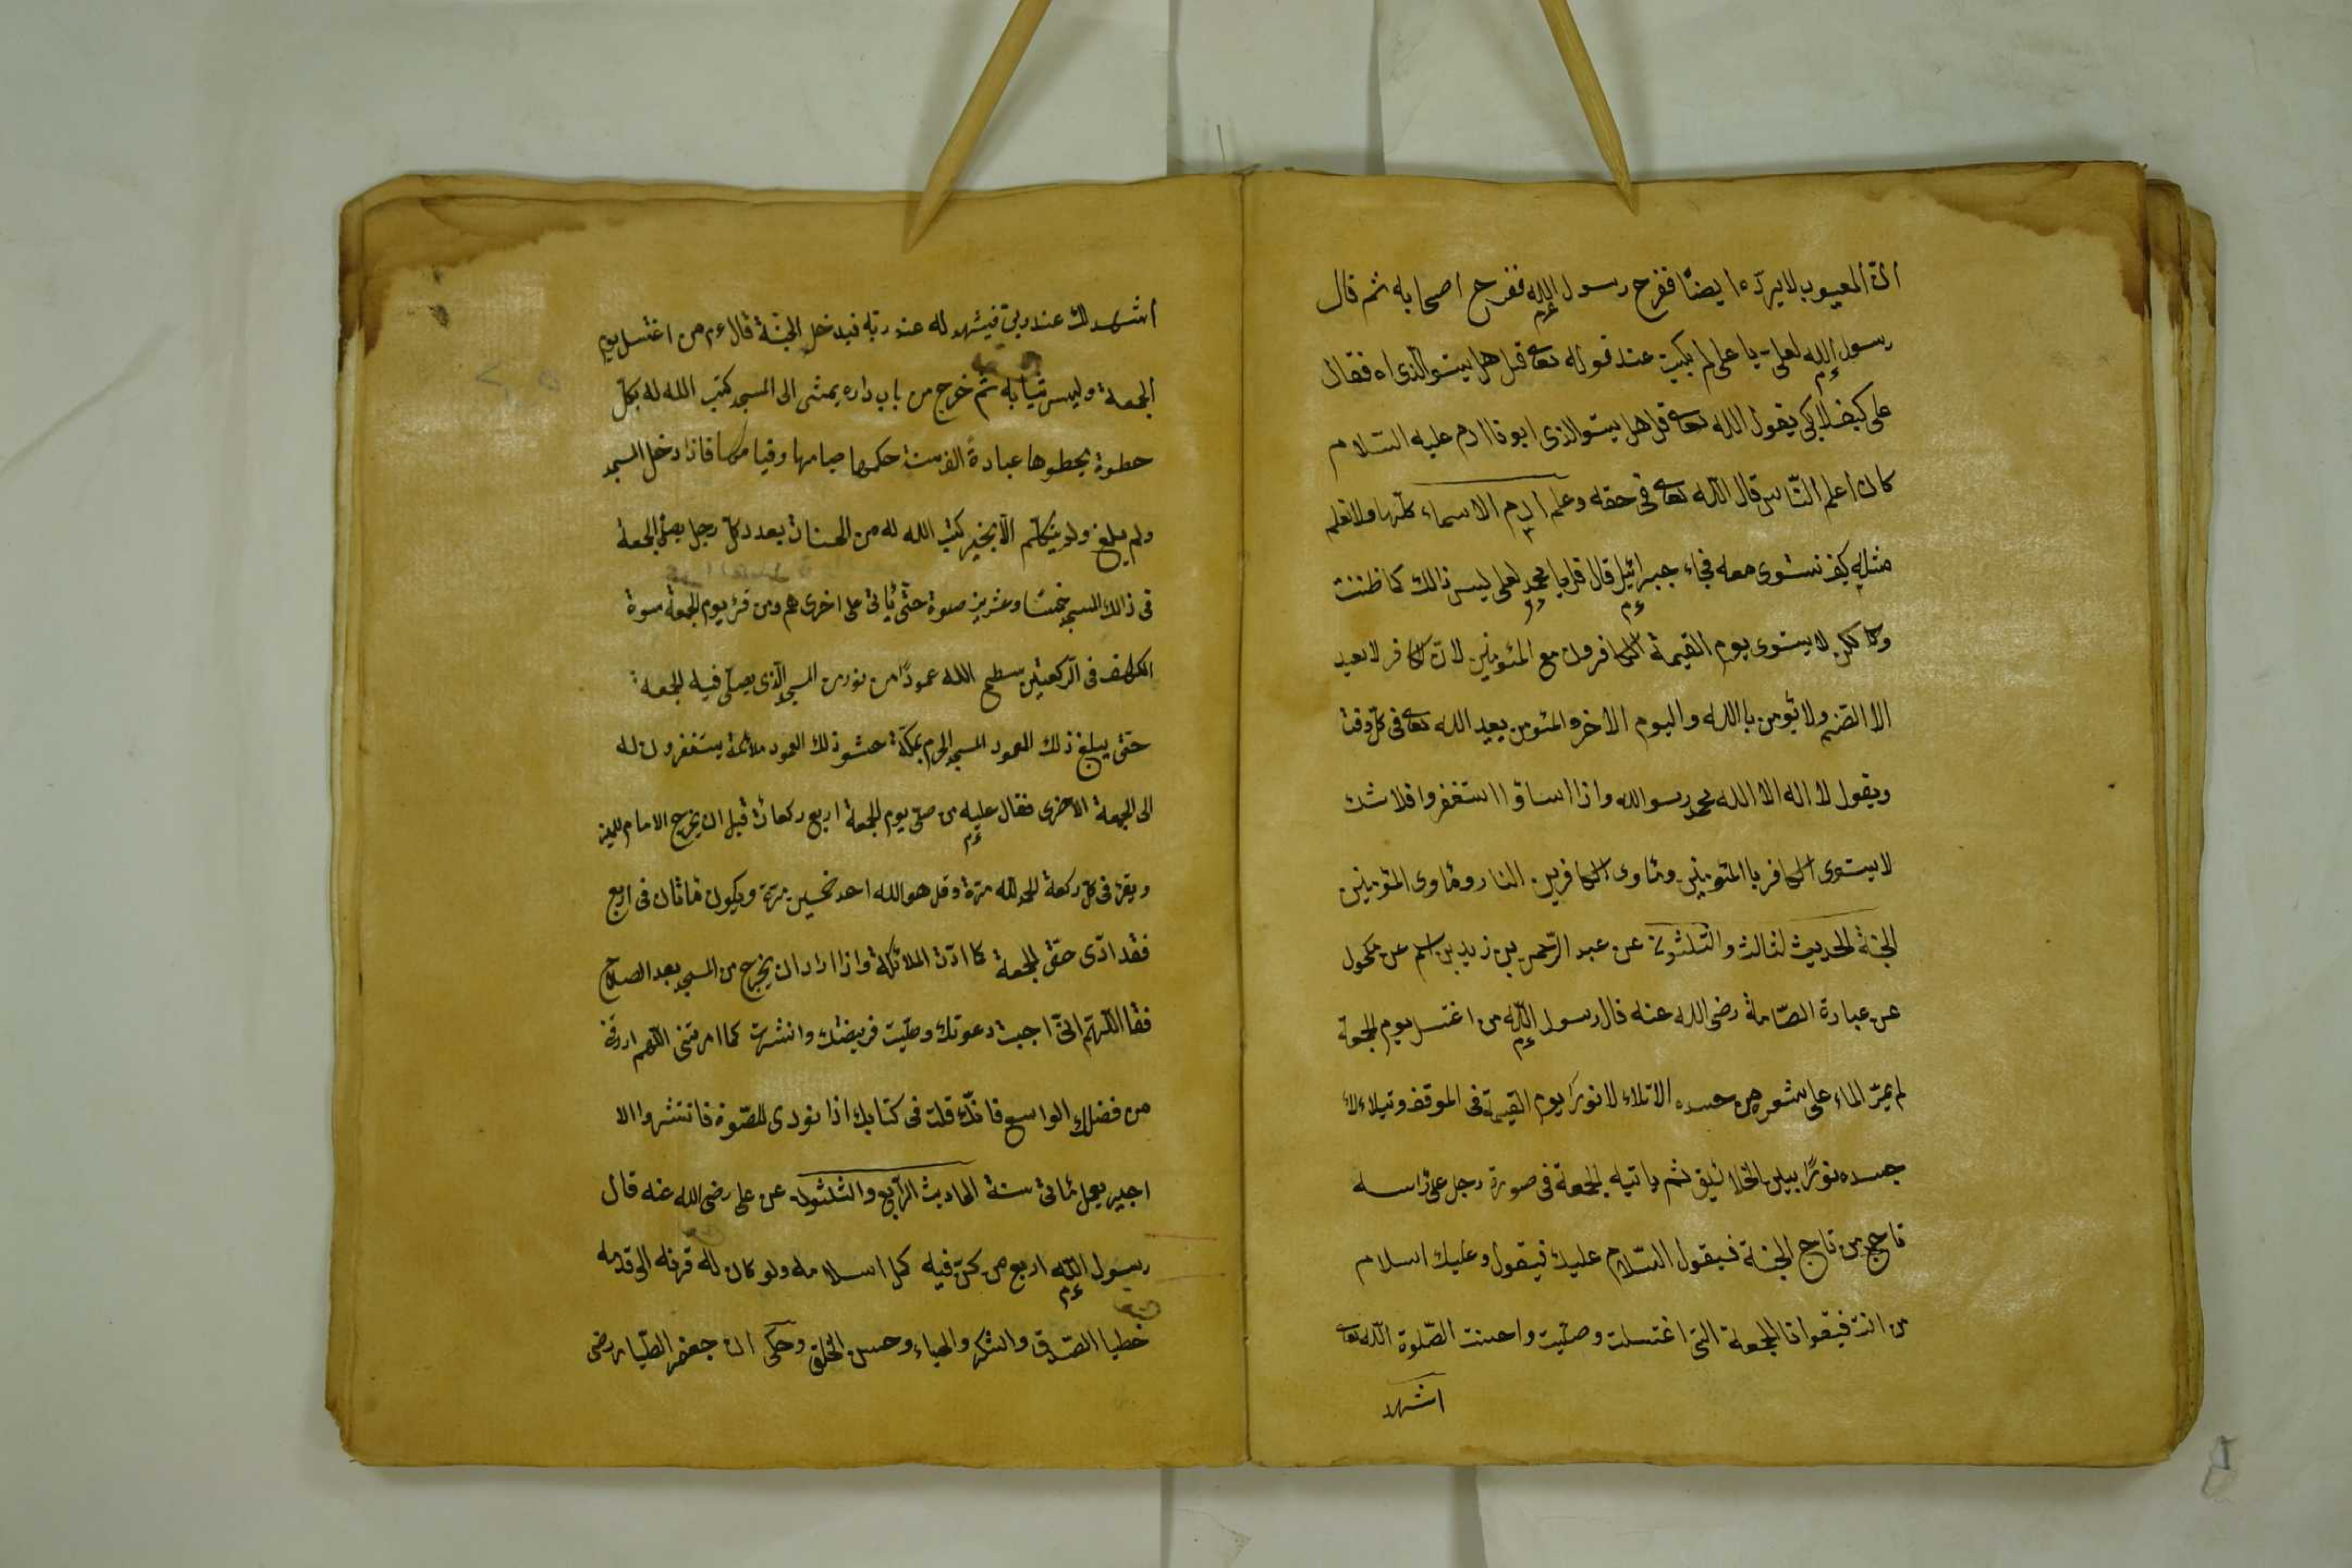 انّ المعيوب لا يردّه ايضًا ففرح رسول الله ففرح اصحابه ثم قال
رسول الله لعلى يا على لم بكيت عند قوله تعالى قل هل يستو الذى اه فقال
على كيف لا ابكى يقول الله تعالى قل هل يستو الذى ابونا ادم عليه السّلام
كان اعلم النّاس قال الله تعالى فى حقه وعلم ادم الاسماء كلّها ولا نعلم
مثله كيف نستوى معه فجاء جبرائيل قال قل يا محمد لعلى ليس ذالك كما ظننت
لا يستوى يوم القيمة الكافرون مع المئومنين لان الكافر لا يعبد
الا الصّنم ولا يؤمن باالله واليوم الاخر والمئومن يعبد الله تعالى فى كلّ وقت
ويقول لا اله الا الله محمد رسو الله واذا اساؤا استغفروا فلا شك
لا يستوى الكافر باالمئومنين ومئاوى الكافرين النار ومئاوى المئومنين
الجنة الحديث الثالث والثلثون عن عبد الرّحمن بن زيد بن اسلم عن مكحول
عن عبادة الصّامة رضى الله عنه قال رسول اللّه من اغتسل يوم الجمعة
لم يمرّ الماء على شعره من جسده الا تلاء لا نورًا يوم القيمة فى الموقف وتيلاء لاء
جسده نورًا بين الخلائيق ثم ياتيه الجمعة فى صورة رجل على رأسه
تاجج من تاج الجنة فيقول السّلام عليك فيقول وعليك اسلام
من انت فيقول انا الجمعة التى اغتسلت وصلّيت واحسنت الصّلوة اللّه تعالى
اشهد
اشهد لك عند ربى فيشهد له عند ربّه فيدخل الجنّة قال عم من اغتسل يوم
الجمعة وليس ثيابه ثمّ خرج من باب داره يمشى الى المسجد كتب الله له بكلّ
خطوة يخطوها عبادةً الف سنة حكمها صيامها وقيامها فاذا دخل المسجد
ولم يلغ ولم يتكلّم الّا بخير كتب الله له من الحسنات بعدد كلّ رجل يصلّى الجمعة
فى ذالك المسجد خمسًا وعشرين صلوة حتّى يأتى على اخرى هم ومن قرء يوم الجمعة سوة
الكهف فى الرّكعتين يسطح الله عمودًا من نور من المسجد الّذى يصلّى فيه الجمعة
حتّى يبلغ ذلك العمود المسجد الحرم بمكّة حشو ذلك العمود ملائكة يستغفرون له
الى الجمعة الاخرى فقال عليه من صلّى يوم الجمعة اربع ركعات قبل ان يخرج الامام
ويقرء فى كلّ ركعة الحمد لله مرّة وقل هو الله احد خمسين مرّة ويكون مأتان فى اربع
فقد ادّى حقّ الجمعة كما ادّت الملائكة واذا اراد ان يخرج من المسجد بعد الصلاح
فقا اللّهمّ انّى اجبت دعوتك وصلّيت فريضتك وانتشرت كما امرتنى اللّهم ارزقنى
من فضلك الواسع فانّك قلت فى كتابك اذا نودى للصّلوة فانتشروا الا
اجير يعمل مائى سنة الحاديث الرّابع والثلثون عن على رضى الله عنه قال
رسول اللّه اربع من كنّ فيه كمل اسلامه ولو كان له قرنه الى قدمه
خطيا الصّدق والشكر والحياء وحسن الخلق وحكى ان جعفر الطّيار رضى